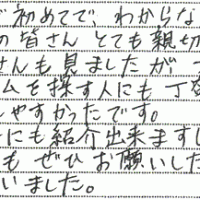 初めてで、わかな
の皆さん とても親切
さんも見ましたが
ムを探す人にも丁寧
しやすかったです。
にも紹介出来ますし
も ぜひ お願いした
いました。